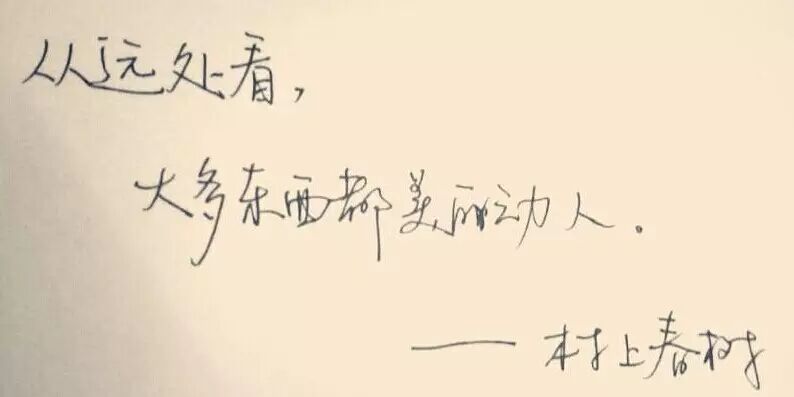 从远处看，
大多东西都美丽动人.
——村上春树